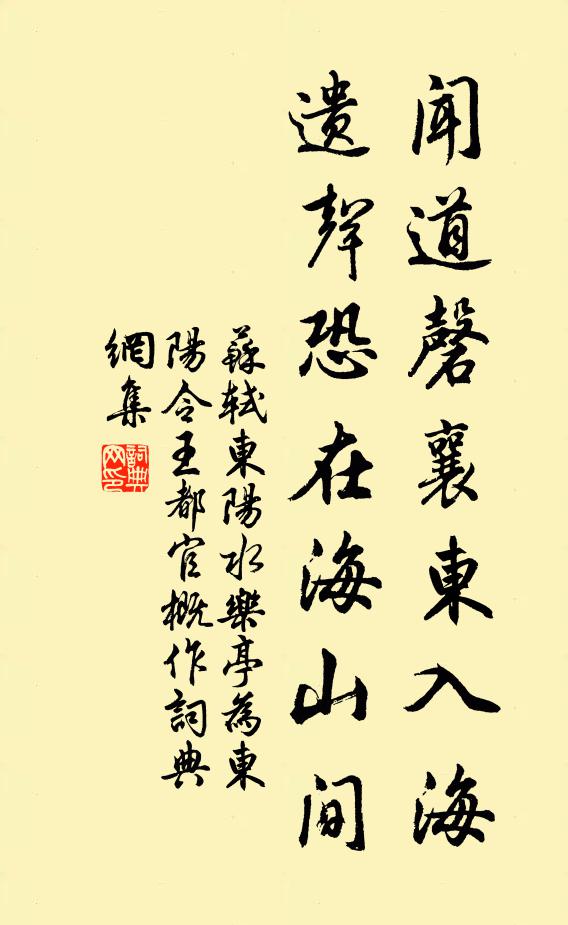 闻道磬襄東入海
遗聲恐在海山间
蘇軾東陽水樂亭為東
陽令王都官概作詞典
網集
詞典
网印